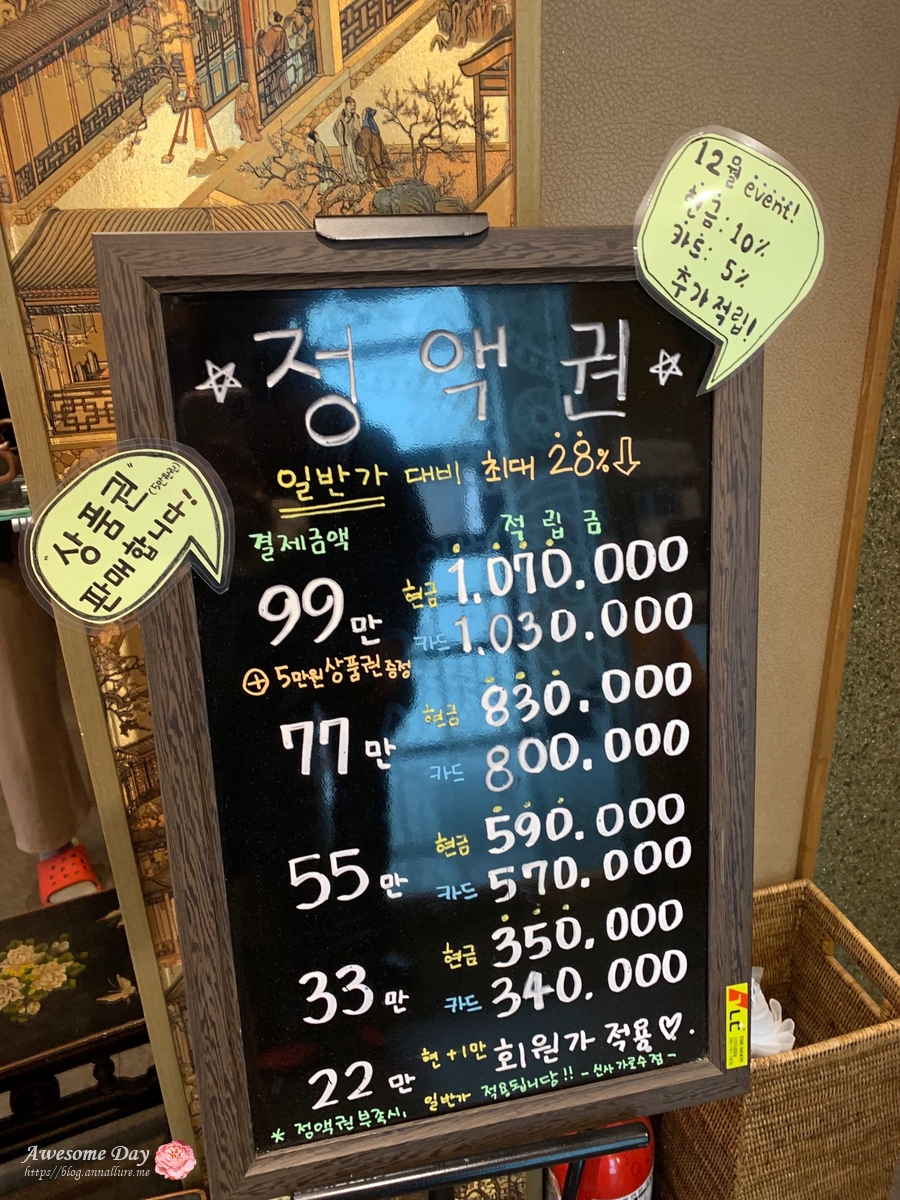 12월 event!
현금: 10%
카드: 5%
추가적립!
☆ 정액권 ☆
일반가 대비 최대 28%⇩
"상품권" (5만원권)
판매합니다!
결제금액 적립금
99만 현금 1.070.000
카드 1.030.000
⊕ 5만원상품권증정
77만 현금 830.000
카드 800.000
55만 현금 590.000
카드 570.000
33만 현금 350.000
카드 340.000
22만 현+1만 회원가 적용♡.
* 정액권부족시, 일반가 적용됩니당!! -신사가로수점-
Awesome Day
https://blog.annallure.me